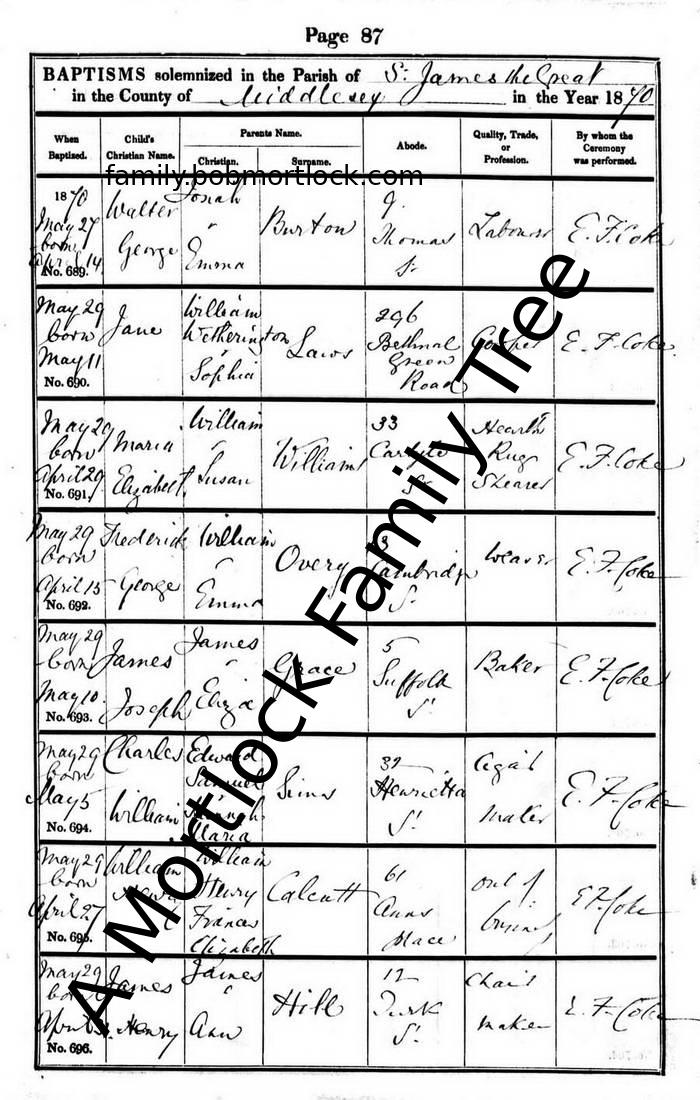 Page 87
BAPTISMS solemnized in the Parish of St. James the Great
in the County of Middlesex in the Year 1870
When Baptized. Child's Christian Name. Parents Name. Abode. Quality, Trade, or Profession. By whom the Ceremony was performed.
Christian. Surname.
family.bobmortlock.com
1870 May 27 born April 14 No. 689. Walter George Josiah " Emma Burton 9 Thomas St Labourer E. F. Coke
May 29 born May 11 No. 690. Jane William Wetherington " Sophia Laws 296 Bethnal Green Road E. F. Coke
May 29 born April 29 No. 691. Maria Elizabeth William " Susan Williams 33 Carlyle St Hearth Rug E. F. Coke
May 29 born April 15 No. 692. Frederick George William " Emma Overy 3 Cambridge St Weaver E. F. Coke
May 29 born May 10 No. 693. James Joseph James " Eliza Grace 5 Suffolk St Baker E. F. Coke
May 29 born May 5 No. 694. Charles William Edward Samuel Hannah Maria Sims 32 Henrietta St Maker E. F. Coke
May 29 born April 27 No. 695. William Henry William Henry Frances Elizabeth Calcutt 61 Anns Place out of E. F. Coke
May 29 born April No. 696. James Henry James " Ann Hill 12 Turk St Chair maker E. F. Coke
A Mortlock Family Tree